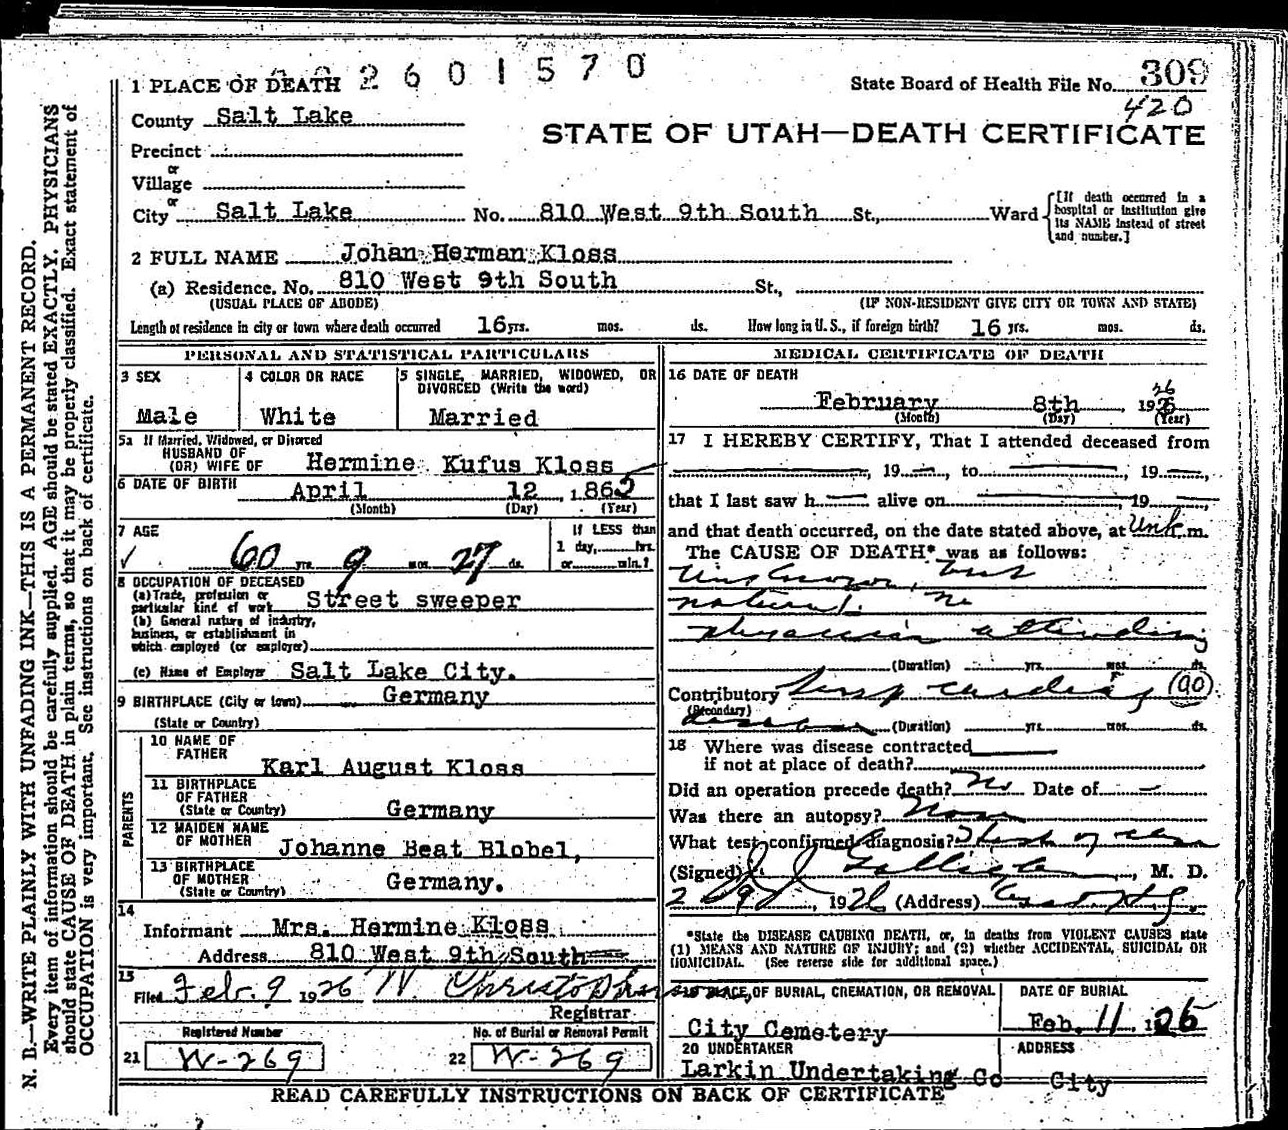 2601570
1 PLACE OF DEATH
State Board of Health File No. 309
420
County Salt Lake
STATE OF UTAH—DEATH CERTIFICATE
Precinct
or
Village
or
City Salt Lake No. 810 West 9th South St., Ward
[If death occurred in a hospital or institution give its NAME instead of street and number.]
2 FULL NAME Johan Herman Kloss
(a) Residence. No. 810 West 9th South St.,
(USUAL PLACE OF ABODE) (IF NON-RESIDENT GIVE CITY OR TOWN AND STATE)
Length of residence in city or town where death occurred 16 yrs. mos. ds. How long in U. S., if foreign birth? 16 yrs. mos. ds.
PERSONAL AND STATISTICAL PARTICULARS
3 SEX
Male
4 COLOR OR RACE
White
5 SINGLE, MARRIED, WIDOWED, OR
DIVORCED (Write the word)
Married
5a If Married, Widowed, or Divorced
HUSBAND OF
(OR) WIFE OF Hermine Kufus Kloss
6 DATE OF BIRTH April 12, 1865
(Month) (Day) (Year)
7 AGE
60 yrs. 9 mos. 27 ds.
If LESS than
1 day, hrs.
or min.?
8 OCCUPATION OF DECEASED
(a) Trade, profession or
particular kind of work Street sweeper
(b) General nature of industry,
business, or establishment in
which employed (or employer)
(c) Name of Employer Salt Lake City.
9 BIRTHPLACE (City or town) Germany
(State or Country)
PARENTS
10 NAME OF
FATHER
Karl August Kloss
11 BIRTHPLACE
OF FATHER
(State or Country) Germany
12 MAIDEN NAME
OF MOTHER
Johanne Beat Blobel,
13 BIRTHPLACE
OF MOTHER
(State or Country) Germany.
14
Informant Mrs. Hermine Kloss
Address 810 West 9th South
15
Filed Feb. 9 1926 W. Christopherson
Registrar
Registered Number
21 W-269
No. of Burial or Removal Permit
22 W-269
MEDICAL CERTIFICATE OF DEATH
16 DATE OF DEATH
26
February 8th, 192
(Month) (Day) (Year)
17 I HEREBY CERTIFY, That I attended deceased from
, 19 , to , 19 ,
that I last saw h alive on 19
and that death occurred, on the date stated above, at Unk m.
The CAUSE OF DEATH* was as follows:
Unknown, but
natural. No
physician attending
(Duration) yrs. mos. ds.
Contributory cardiac (90)
(Secondary)
disease (Duration) yrs. mos. ds.
18 Where was disease contracted
if not at place of death?
Did an operation precede death? No Date of —
Was there an autopsy? None
What test confirmed diagnosis?
(Signed) , M. D.
2 9, 1926 (Address)
*State the DISEASE CAUSING DEATH, or, in deaths from VIOLENT CAUSES state
(1) MEANS AND NATURE OF INJURY; and (2) whether ACCIDENTAL, SUICIDAL OR
HOMICIDAL. (See reverse side for additional space.)
19 PLACE, OF BURIAL, CREMATION, OR REMOVAL
City Cemetery
DATE OF BURIAL
Feb. 11, 1926
20 UNDERTAKER
Larkin Undertaking Co
ADDRESS
City
READ CAREFULLY INSTRUCTIONS ON BACK OF CERTIFICATE
N. B.—WRITE PLAINLY WITH UNFADING INK—THIS IS A PERMANENT RECORD.
Every item of information should be carefully supplied. AGE should be stated EXACTLY. PHYSICIANS
should state CAUSE OF DEATH in plain terms, so that it may be properly classified. Exact statement of
OCCUPATION is very important. See instructions on back of certificate.